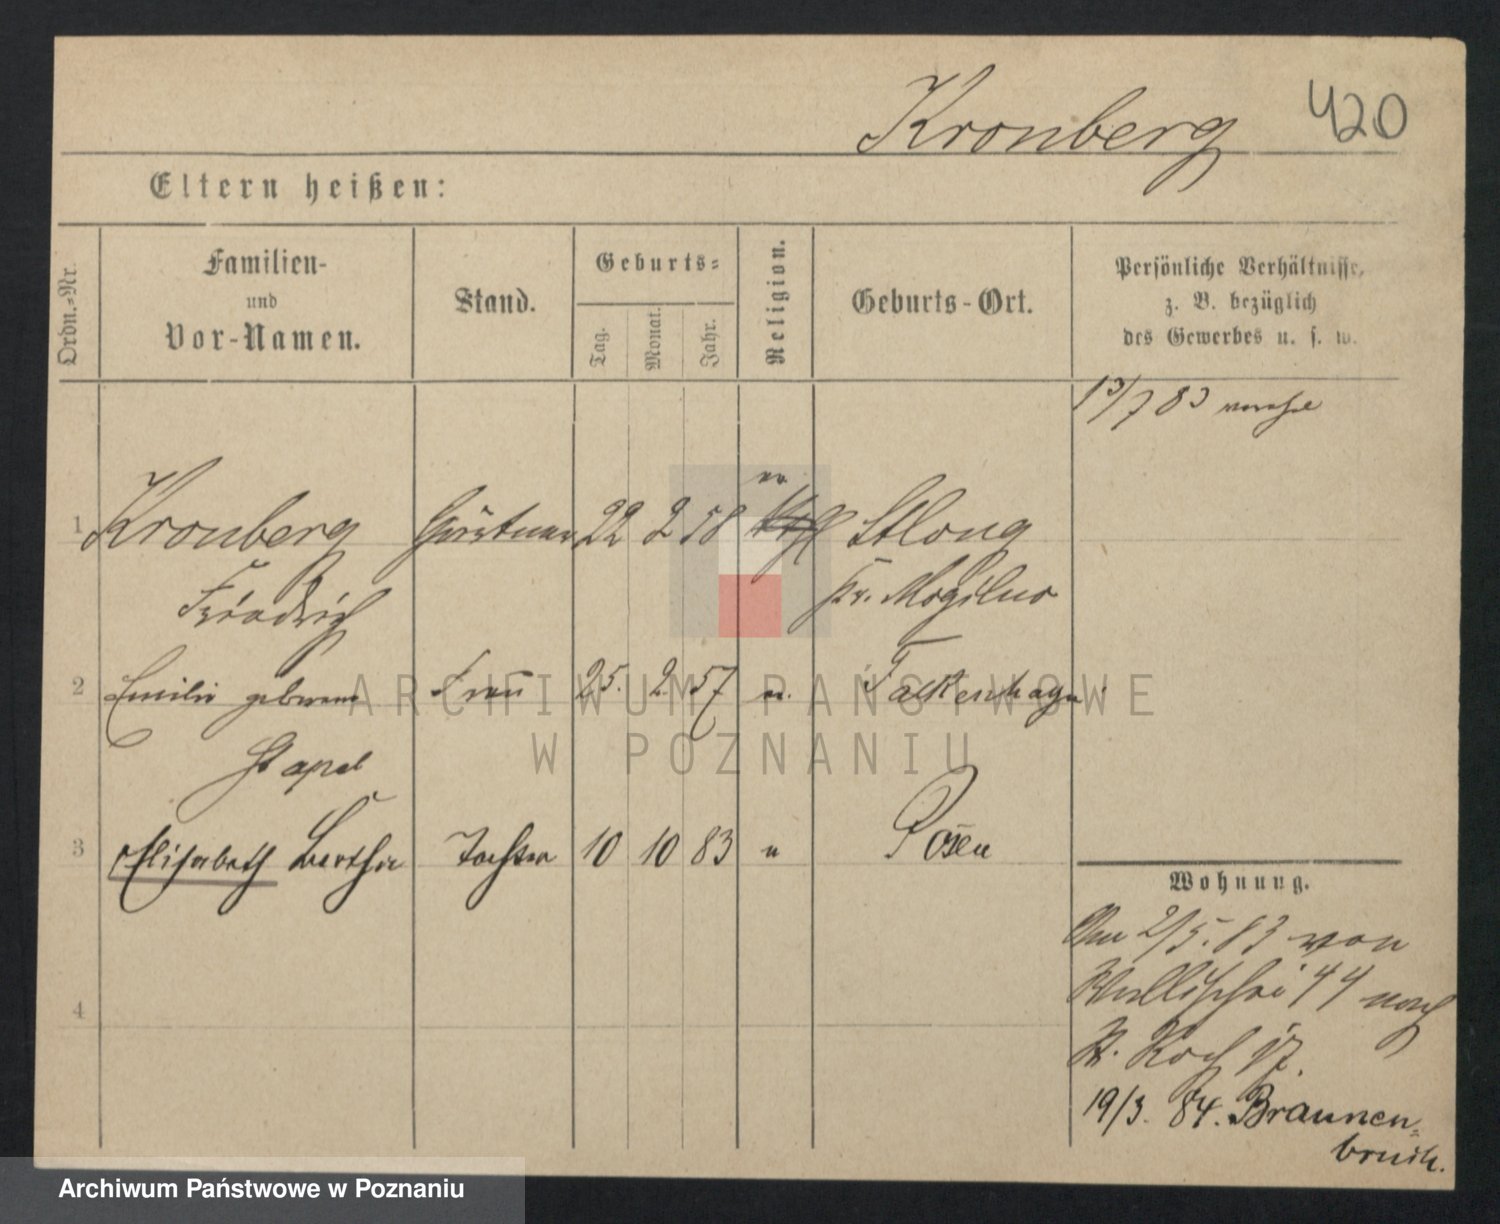 Kronberg 420
Eltern heißen:
Ordn.-Nr.
Familien-
und
Vor-Namen.
Stand.
Geburts-
Tag.
Monat.
Jahr.
Religion.
Geburts-Ort.
Persönliche Verhältnisse,
z. B. bezüglich
des Gewerbes u. s. w.
13/7 83
ev
1 Kronberg Gärtner 22 2 58 kath Slong
Friedrich Kr. Mogilno
2 Emilie geborene Frau 25. 2. 57 ev. Falkenhagen
Stapel
3 Elisabeth Bertha Tochter 10 10 83 " Posen
Wohnung.
Am 2/5. 83 von
Wallischei 44 nach
St. Roch 17.
4
19/3. 84. Braunen-
bruch.
ARCHIWUM PAŃSTWOWE
W POZNANIU
Archiwum Państwowe w Poznaniu